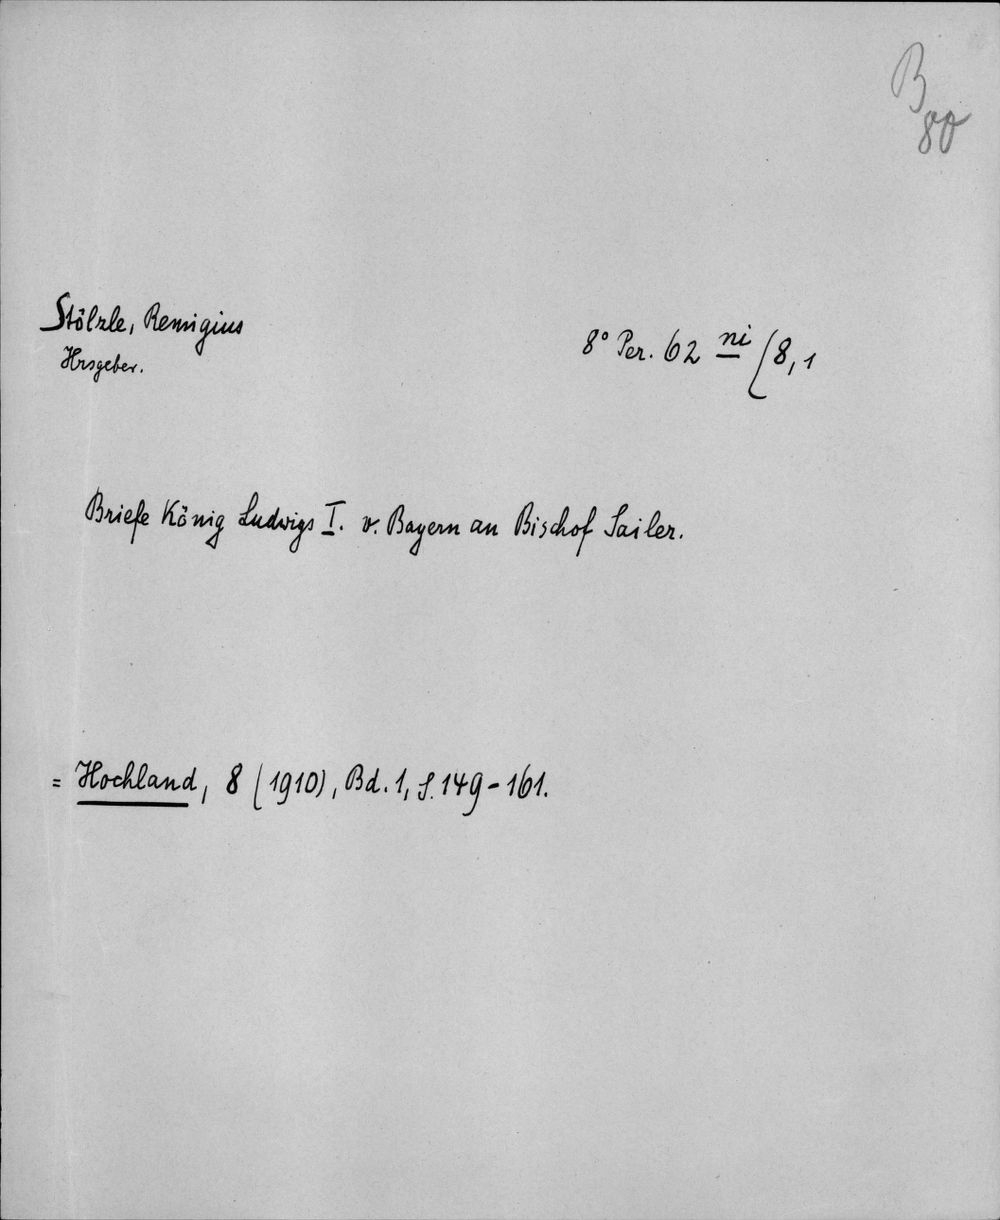 B
80
Stölzle, Remigius
Hrsgeber.
8° Per. 62 ni (8,1
Briefe König Ludwigs I. v. Bayern an Bischof Sailer.
= Hochland, 8 (1910), Bd. 1, S. 149-161.